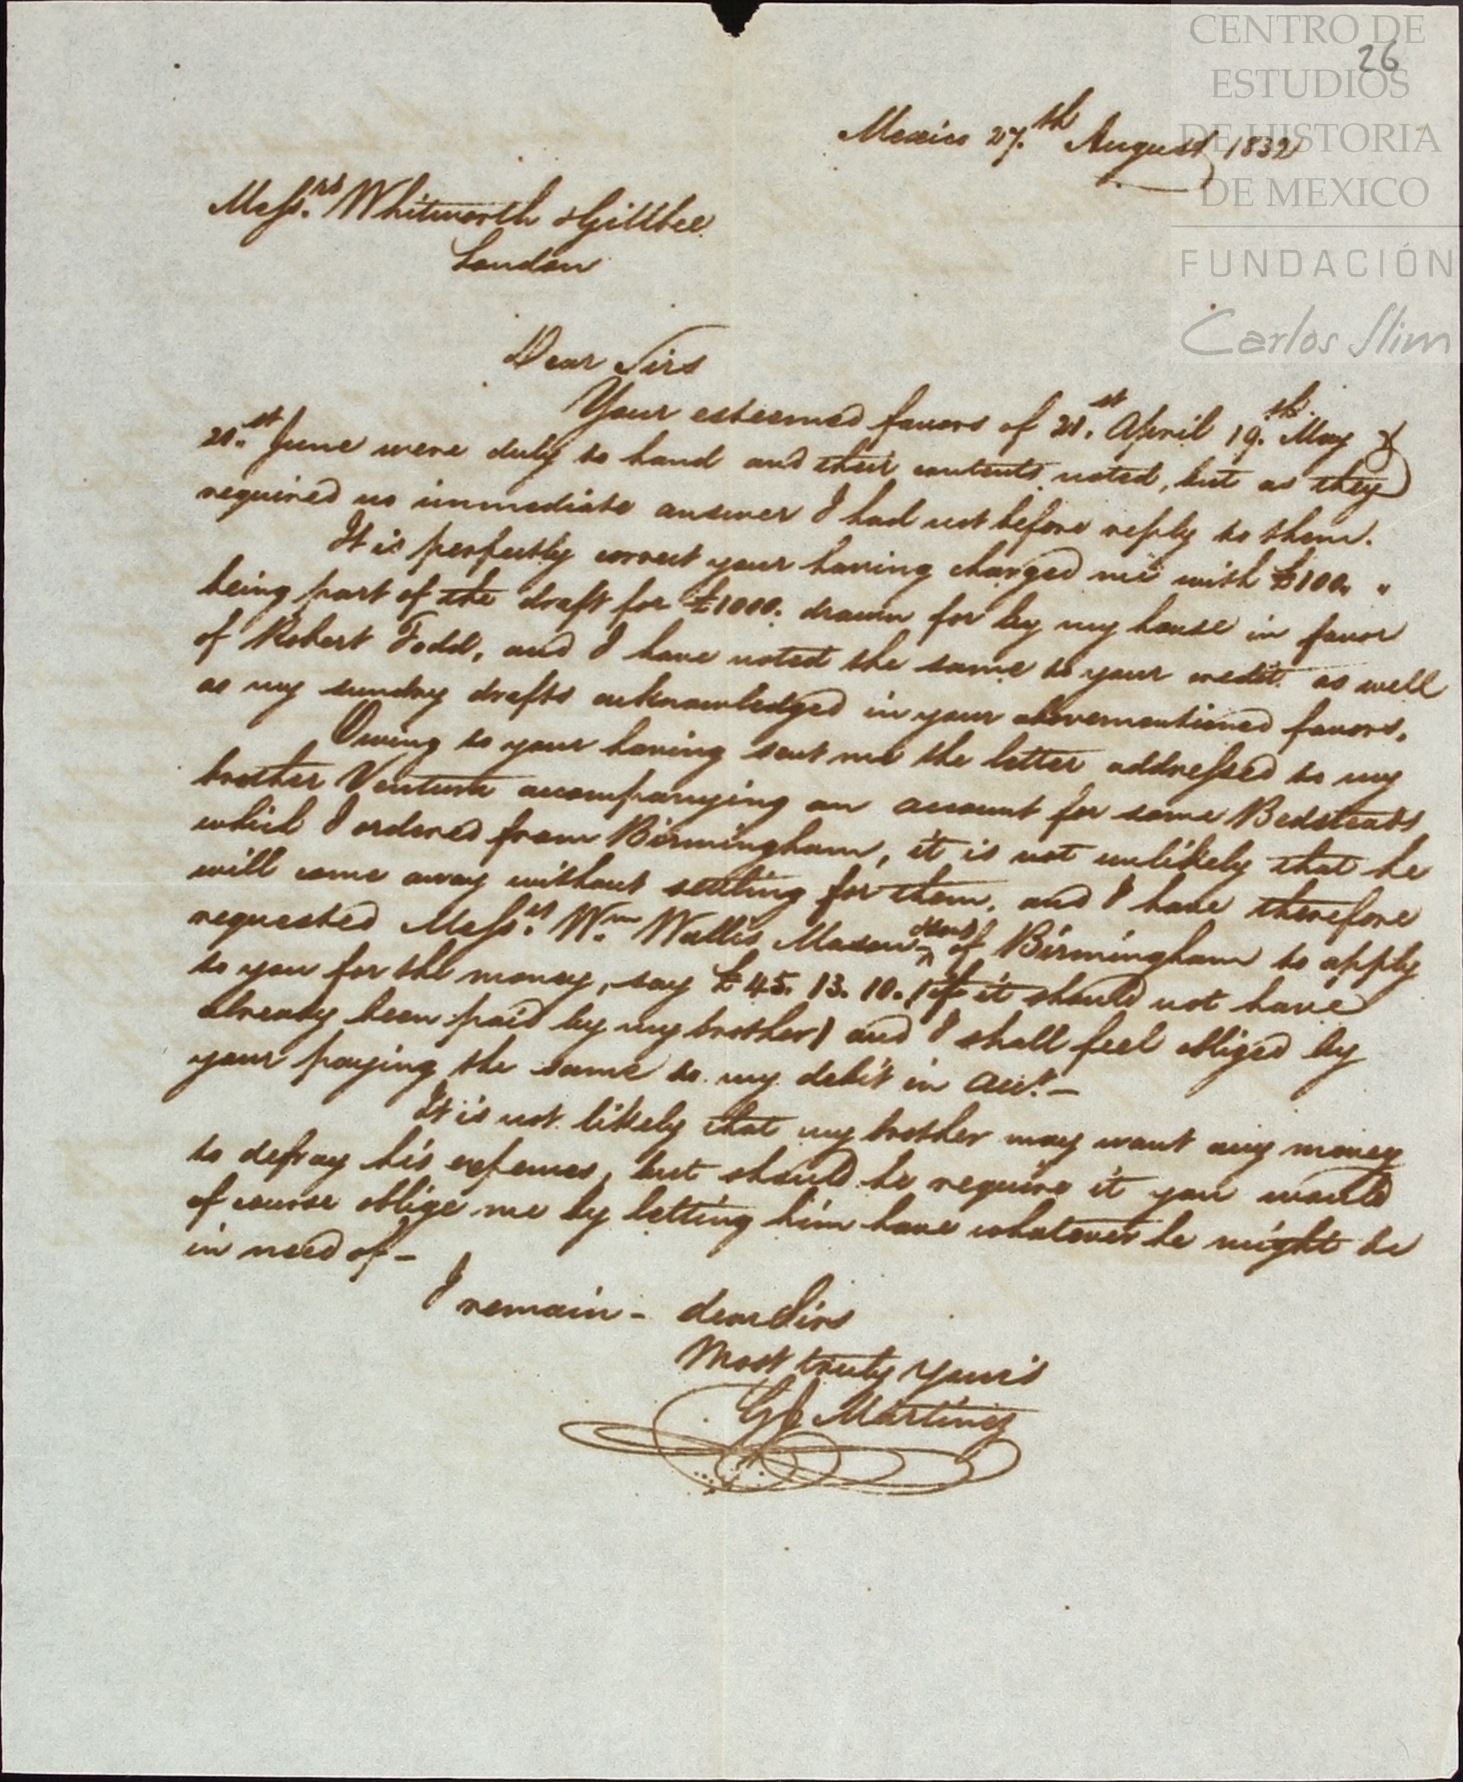 CENTRO DE
ESTUDIOS
DE HISTORIA
DE MEXICO
FUNDACIÓN
Carlos Slim
26
Mexico 27.th August 1832
Messrs. Whitworth & Gillbee
London
Dear Sirs
Your esteemed favors of 21.st April 19.th May &
21.st June were duly to hand and their contents noted, but as they
required no immediate answer I had not before reply to them.
It is perfectly correct your having charged me with £100. "
being part of the draft for £1000. drawn for by my house in favor
of Robert Todd, and I have noted the same to your credit as well
as my sundry drafts acknowledged in your abovementioned favors.
Owing to your having sent me the letter addressed to my
brother Ventura accompanying an account for some Bedsteads
which I ordered from Birmingham, it is not unlikely that he
will come away without settling for them, and I have therefore
requested Messrs. Wm. Wallis Mason of Birmingham to apply
to you for the money, say £45. 13. 10. (if it should not have
already been paid by my brother) and I shall feel obliged by
your paying the same to my debit in acct. —
It is not likely that my brother may want any money
to defray his expences, but should he require it you would
of course oblige me by letting him have whatever he might be
in need of —
I remain — dear Sirs
Most truly Your's
Martinez